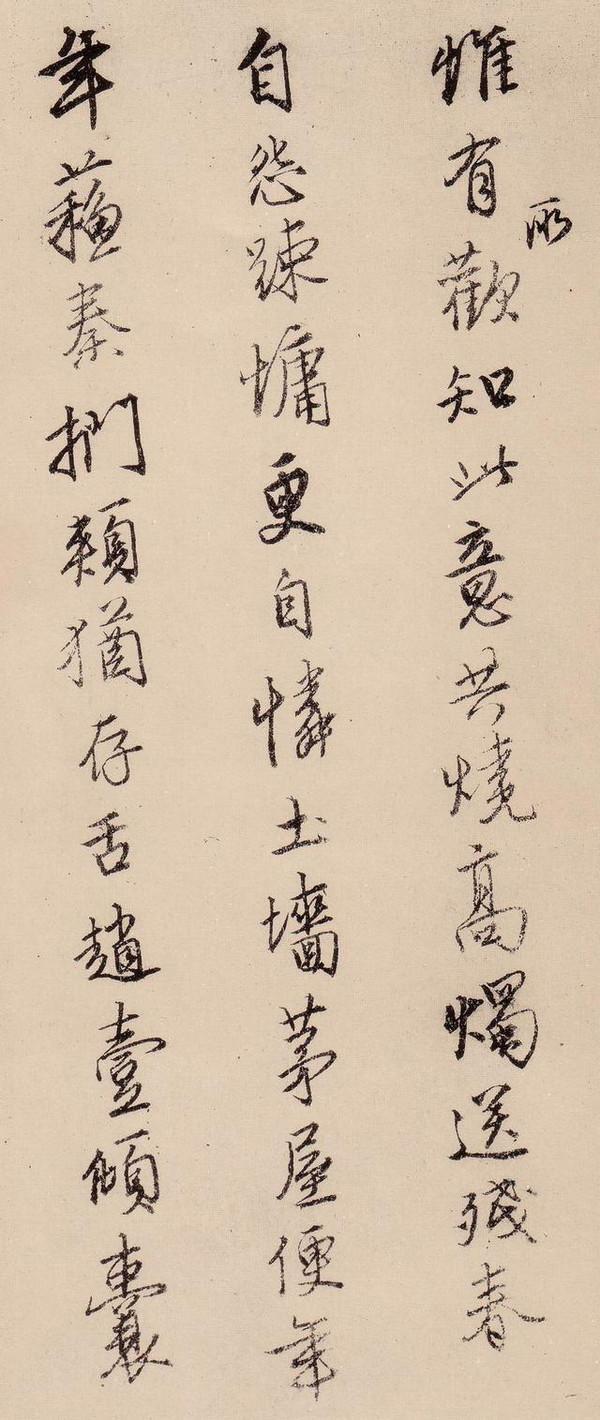 惟有所歡知此意共燒高燭送殘春
自怨踈慵更自憐土墻茅屋便年
年蘓秦捫頰猶存舌趙壹傾囊